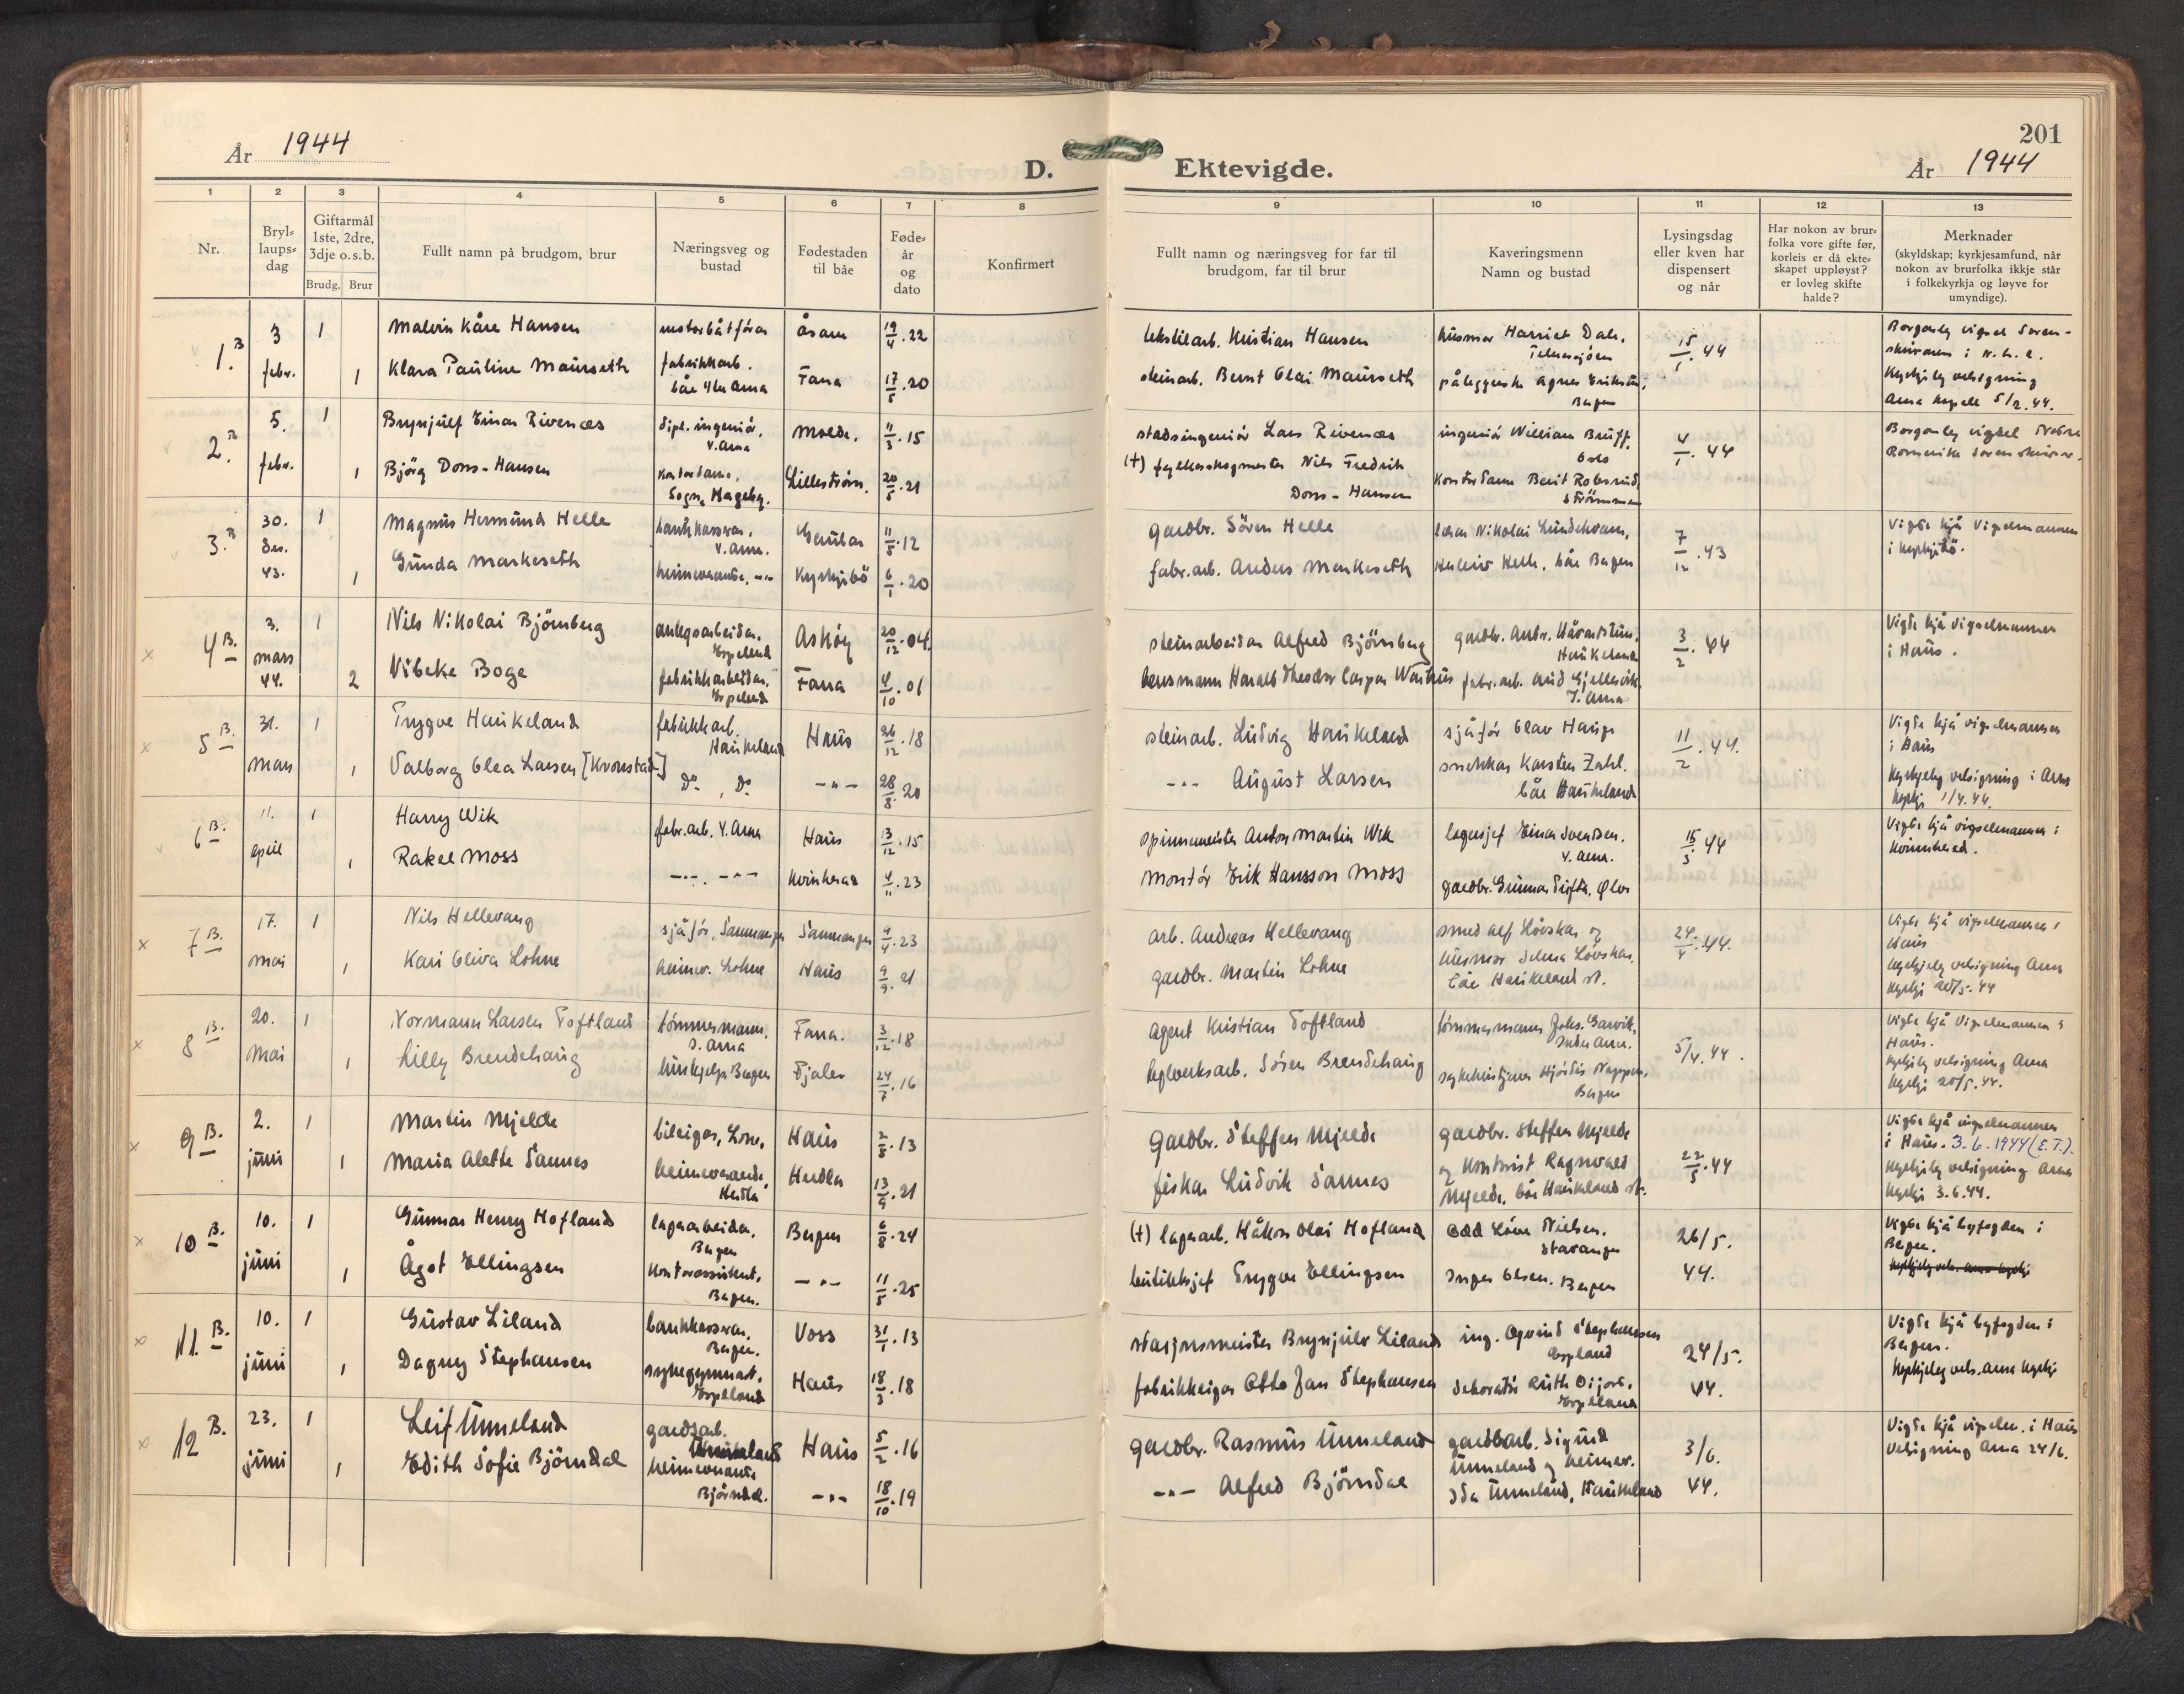 År 1944
D. Ektevigde.
201
År 1944
1 2 3 4 5 6 7 8 9 10 11 12 13
Nr.
Bryllaupsdag
Giftarmål 1ste, 2dre, 3dje o.s.b.
Brudg. Brur
Fullt namn på brudgom, brur
Næringsveg og bustad
Fødestaden til båe
Fødeår og dato
Konfirmert
Fullt namn og næringsveg for far til brudgom, far til brur
Kaveringsmenn Namn og bustad
Lysingsdag eller kven har dispensert og når
Har nokon av brurfolka vore gifte før, korleis er då ekteskapet uppløyst? er lovleg skifte halde?
Merknader (skyldskap; kyrkjesamfund, når nokon av brurfolka ikkje står i folkekyrkja og løyve for umyndige).
1. B 3 febr. 1 Malvin Kåre Hansen motorbåtförar Åsane 19/4.22 tekstilarb. Kristian Hansen husmor Harriet Dale, 15/1.44
1 Klara Pauline Maurseth fabrikkarb. båe Ytre Arna Fana 17/5.20 steinarb. Bernt Olai Maurseth Bergen
Kyrkjeleg velsigning
Arna kapell 5/2.44.
2. B 5. febr. 1 Brynjulf Einar Rivenes dipl. ingeniör, Y. Arna Molde. 11/3.15 stadsingeniör Lars Rivenes ingeniör William Bruff, Oslo 4/1.44
1 Björg Dons-Hansen Kontordame, Sogn Hageby. Lilleström. 20/5.21 (+) fylkesskogmester Nils Fredrik Dons-Hansen Kontordame Berit Strömmen
Borgarleg vigsel Nedre Romerike Sorenskrivar.
3. B 30. des. 43. 1 Magnus Hermund Helle bankkasserar, Y. Arna. Gaular 11/5.12 gardbr. Sören Helle 7/12.43
1 Gunda Markeseth heimeverande, -"- Kyrkjebö 6/1.20 fabr.arb. Anders Markeseth Helle, båe Bergen
Vigde hjå Vigselmannen i Kyrkjebö.
4 B. 3. mars 44. 1 Nils Nikolai Björnberg anlegsarbeidar. Espeland Asköy 20/12.04 steinarbeidar Alfred Björnsberg gardbr. Haukeland 3/2.44
2 Vibeke Boge fabrikkarbeidar. Espeland Fana 4/10.01 lensmann Harald Theodor Caspar fabr.arb.
Vigde hjå Vigselmannen i Haus.
5 B. 31. mars 1 Trygve Haukeland fabrikkarb. Haukeland Haus 26/12.18 steinarb. Ludvig Haukeland sjåför Olav Hauge 11/2.44.
1 Valborg Olea Larsen [Kronstad] Do , Do -"- 28/8.20 -"- August Larsen snekkar Karsten Zahl. båe Haukeland
Vigde hjå vigselmannen i Haus
Kyrkjeleg velsigning i Arna kyrkje 1/4.44.
6 B. 11. april 1 Harry Wik fabr.arb. Y. Arna Haus 13/12.15 spinnemeister Anton Martin Wik lagersjef Einar Svendsen. Y. Arna. 15/3.44
1 Rakel Moss -"- -"- Kvinherad 4/11.23 Montör Erik Hansson Moss gardbr. Gunnar Ølve
Vigde hjå vigselmannen i Kvinnherad.
7 B. 17. mai 1 Nils Hellevang sjåför, Samnanger Samnanger 9/4.23 arb. Andreas Hellevang smed Alf Lövskar og 24/4.44.
1 Kari Oliva Lohne heimev. Lohne Haus 9/9.21 gardbr. Martin Lohne husmor Selma Lövskar. båe Haukeland st.
Vigde hjå vigselmannen i Haus
Kyrkjeleg velsigning Arna kyrkje 20/5.44
8 B. 20. mai 1 Normann Larsen Toftland tömmermann. I. Arna Fana. 3/12.18 agent Kristian Toftland tömmermann Johs. Garvik, Indre Arna. 5/4.44.
1 Lilly Brendehaug hushjelp Bergen Fjaler 24/7.16 teglverksarb. Sören Brendehaug Hjördis Bergen
Vigde hjå Vigselmannen i Haus.
Kyrkjeleg velsigning Arna kyrkje 20/5.44.
9 B. 2. juni 1 Martin Mjelde bileigar, Lone, Haus 2/8.13 Gardbr. Steffen Mjelde gardbr. Steffen Mjelde 22/5.44
1 Maria Alette Sannes heimeverande, Herdla Herdla 13/9.21 fiskar Ludvik Sannes og Kontorist Ragnvald Mjelde, båe Haukeland st.
Vigde hjå vigselmannen i Haus. 3.6.1944 (E.T.).
Kyrkjeleg velsigning Arna kyrkje 3.6.44.
10 B. 10. juni 1 Gunnar Henry Hofland lagerarbeidar. Bergen Bergen 6/8.24 (+) lagerarb. Håkon Olai Hofland Odd Löve Nielsen. Stavanger 26/5.
1 Ågot Ellingsen Kontorassistent, Bergen. -"- 11/5.25 butikksjef Trygve Ellingsen Inger Olsen. Bergen 44.
Vigde hjå byfogden i Bergen.
11. B. 10. juni 1 Gustav Liland bankkasserar, Bergen. Voss 31/1.13 stasjonsmeister Brynjulv Liland ing. Öyvind Stephansen Espland 24/5.
1 Dagny Stephansen sykegymnast. Espeland Haus 18/3.18 fabrikkeigar Otto Jan Stephansen dekoratör Ruth Espeland 44.
Vigde hjå byfogden i Bergen.
Kyrkjeleg vels. Arna kyrkje
12 B. 23. juni 1 Leif Unneland gardsarb. Unneland Haus 5/2.16 gardbr. Rasmus Unneland gardsarb. Sigurd 3/6.
1 Edith Sofie Björndal heimeverande Björndal. -"- 18/10.19 -"- Alfred Björndal Unneland og heimev. Ida Unneland, Haukeland 44.
Vigde hjå vigselm. i Haus
Velsigning Arna 24/6.